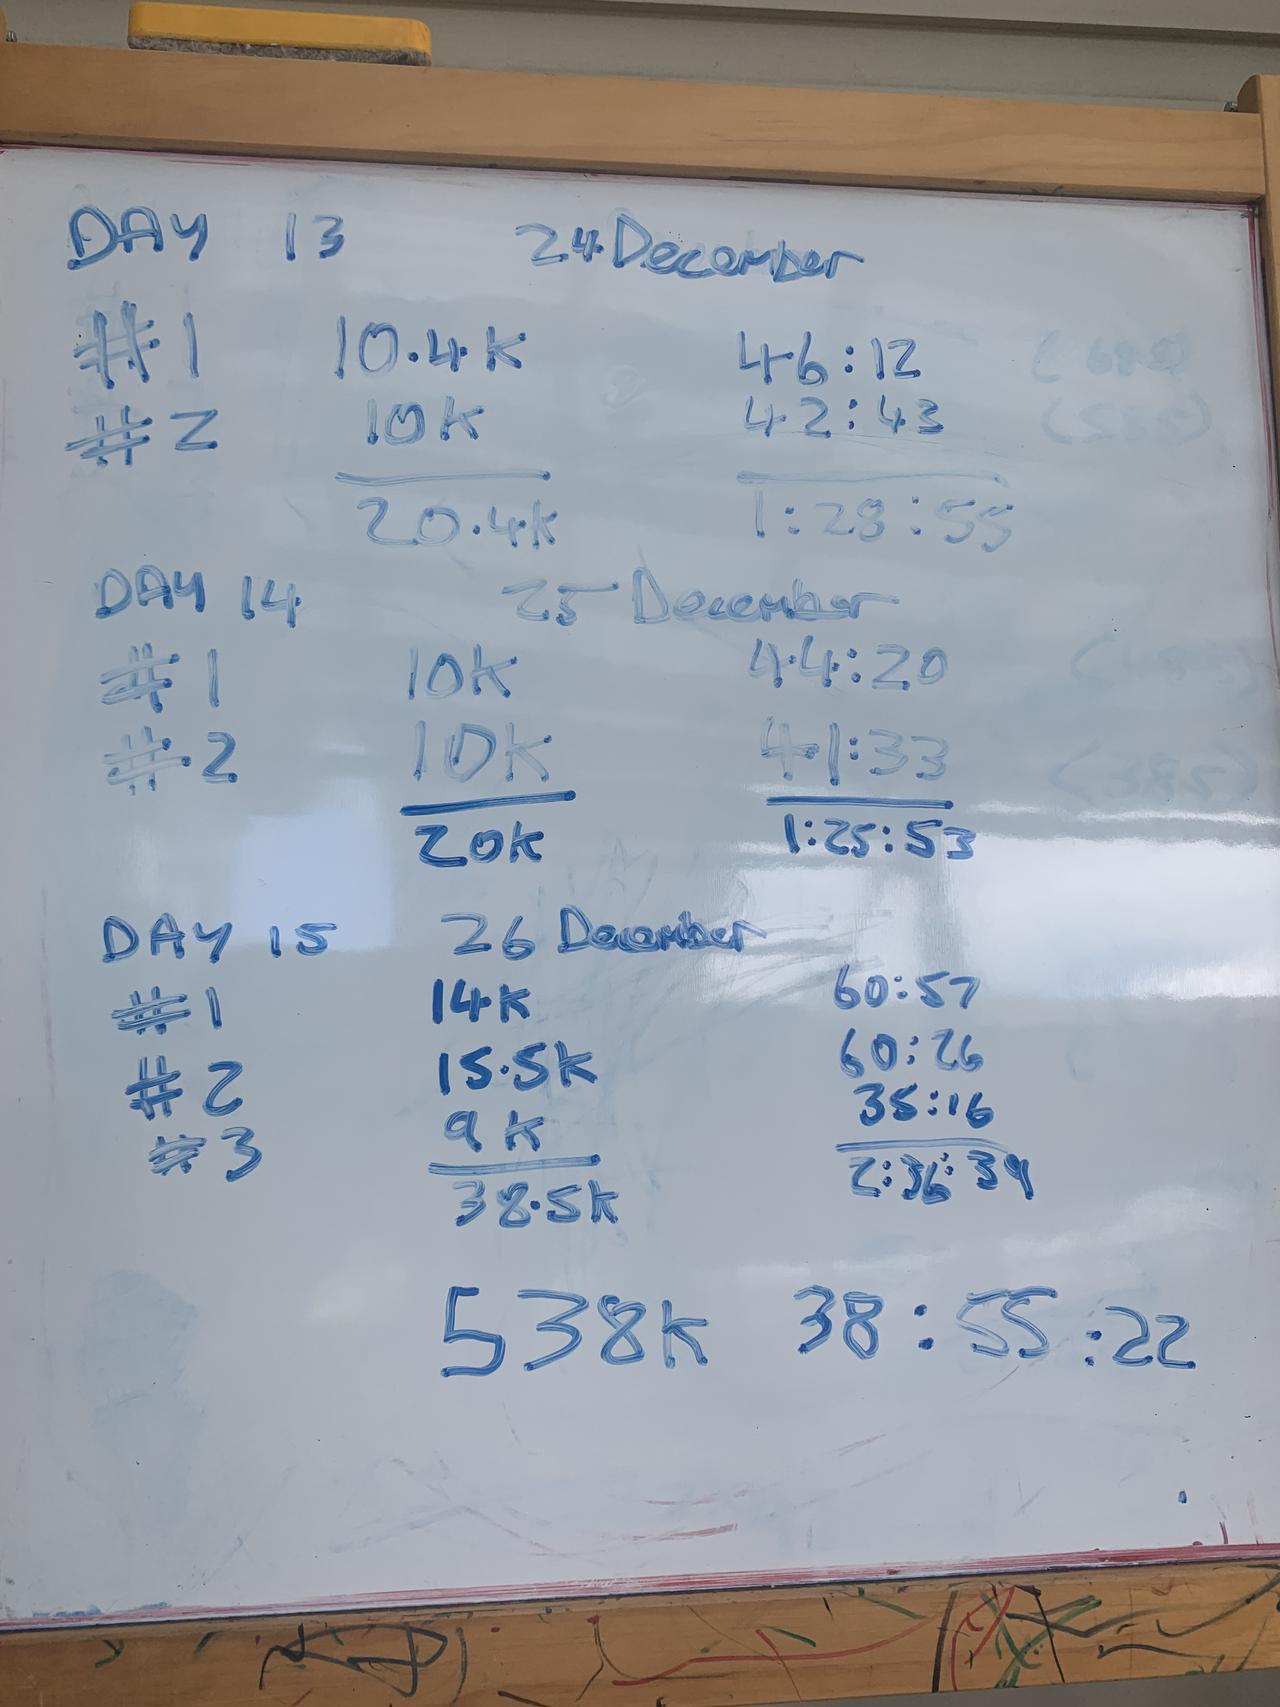 DAY 13 24 December
#1 10.4k 46:12
#2 10k 42:43
20.4k 1:28:55
DAY 14 25 December
#1 10k 44:20
#2 10k 41:33
20k 1:25:53
DAY 15 26 December
#1 14k 60:57
#2 15.5k 60:26
#3 9k 35:16
38.5k 2:36:39
538k 38:55:22